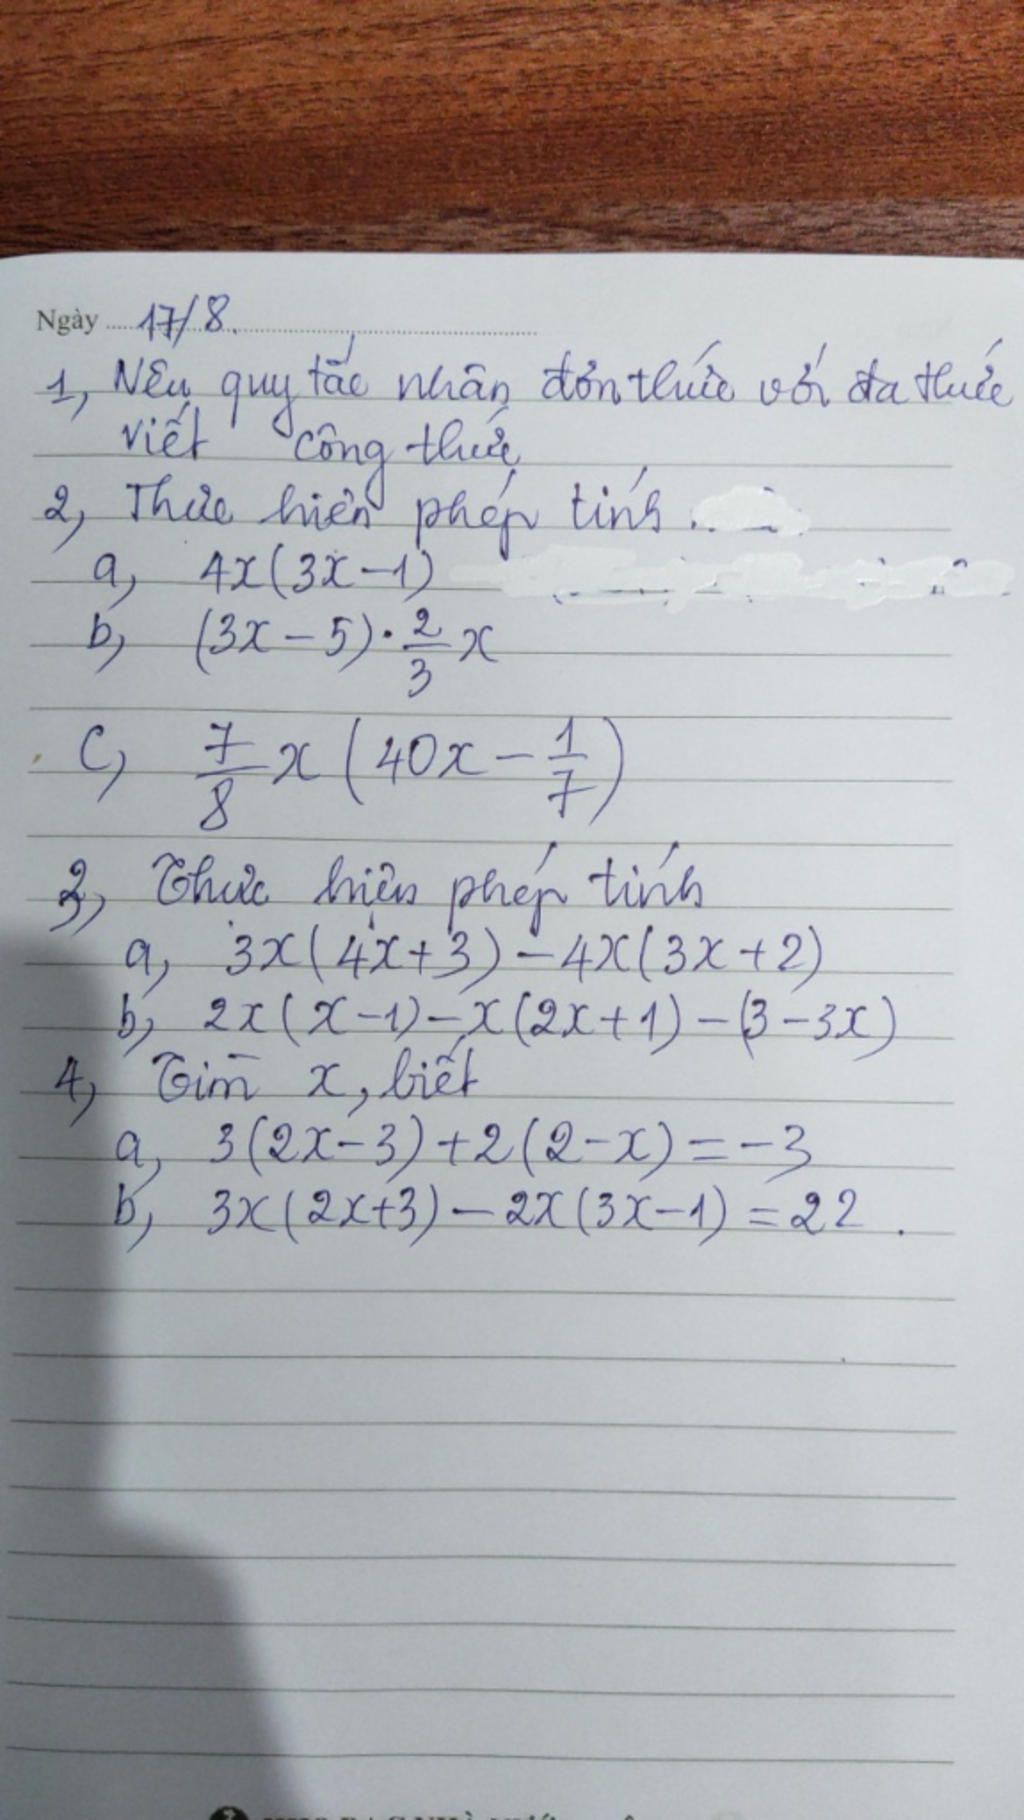 Ngày 17/8.
1, Nêu quy tắc nhân đơn thức với đa thức
viết công thức
2, Thực hiện phép tính
a, 4x(3x-1)
b, (3x-5)·2/3x
c, 7/8x(40x-1/7)
3, Thực hiện phép tính
a, 3x(4x+3)-4x(3x+2)
b, 2x(x-1)-x(2x+1)-(3-3x)
4, Tìm x, biết
a, 3(2x-3)+2(2-x)=-3
b, 3x(2x+3)-2x(3x-1)=22.